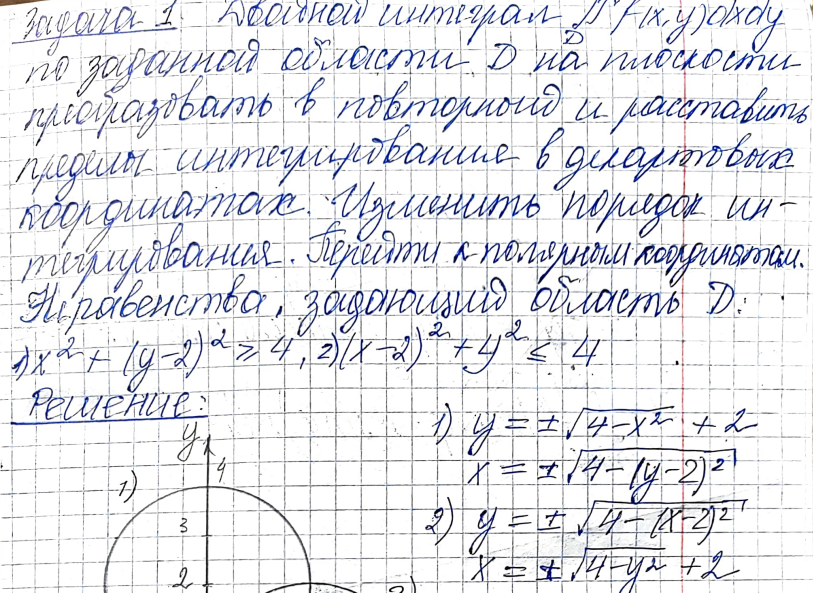 Задача 1. Двойной интеграл ∬ f(x,y)dxdy
D
по заданной области D на плоскости
преобразовать в повторной и расставить
пределы интегрирования в декартовых
координатах. Изменить порядок ин-
тегрирования. Перейти к полярным координатам.
Неравенства, задающий область D:
1) x² + (y-2)² ≥ 4, 2) (x-2)² + y² ≤ 4
Решение:
1) y = ±√(4-x²) + 2
x = ±√(4-(y-2)²)
2) y = ±√(4-(x-2)²)
x = ±√(4-y²) + 2
y
4
1)
3
2
2)